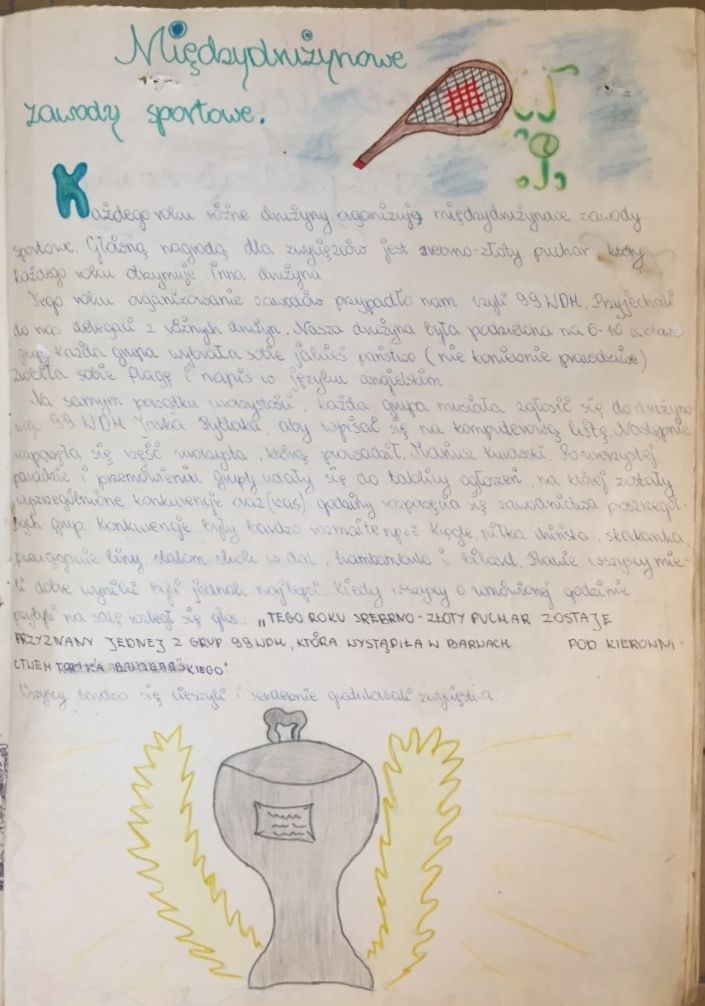 Międzydrużynowe
zawody sportowe.
Każdego roku różne drużyny organizują międzydrużynowe zawody
sportowe. Główną nagrodą dla zwycięzców jest srebrno-złoty puchar który
każdego roku otrzymuje inna drużyna.
Tego roku organizowanie zawodów przypadło nam czyli 99 WDH. Przyjechali
do nas delegaci z różnych drużyn. Nasza drużyna była podzielona na 6-10 osobowe
grupy każda grupa wybrała sobie jakieś państwo (nie koniecznie prawdziwe)
zrobiła sobie flagę i napis w języku angielskim.
Na samym początku uroczystości, każda grupa musiała zgłosić się do drużyno
wego 99 WDH Jacka, aby wpisać się na komputerową listę. Następnie
rozpoczęła się część uroczysta, którą prowadził. Mariusz. Po uroczystej
paradzie i przemówieniu grupy udały się do tablicy ogłoszeń, na której zostały
wyszczególnione konkurencje oraz (kas) godziny rozpoczęcia się zawodnictwa poszczegól-
nych grup. Konkurencje były bardzo rozmaite np: Kręgle, piłka, skakanka,
przeciąganie liny slalom, skok w dal, i bilard. Prawie wszyscy mie-
li dobre wyniki byli jednak najlepsi. Kiedy wszyscy o umówionej godzinie
przybyli na salę rozległ się głos. „TEGO ROKU SREBRNO-ZŁOTY PUCHAR ZOSTAJE
PRZYZNANY JEDNEJ Z GRUP 99WDH, KTÓRA WYSTĄPIŁA W BARWACH POD KIEROWNI-
CTWEM KIEGO."
Wszyscy bardzo się cieszyli i serdecznie gratulowali